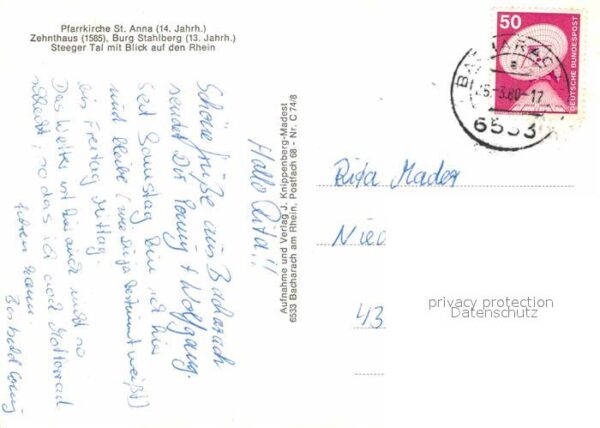 Pfarrkirche St. Anna (14. Jahrh.)
Zehnthaus (1585), Burg Stahlberg (13. Jahrh.)
Steeger Tal mit Blick auf den Rhein
Hallo Rita!!
Schöne Grüße aus Bacharach
sendet Dir Conny + Wolfgang.
Seit Samstag bin ich hier
und bleibe (wie Du ja bestimmt weißt)
bis Freitag Mittag
Das Wetter ist hier auch nicht so
schlecht, so das ich
Motorrad
fahren kann.
Bis bald Conny
Aufnahme und Verlag J. Knippenberg-Madest
6533 Bacharach am Rhein, Postfach 68 - Nr. C 74/8
50
DEUTSCHE BUNDESPOST
BACHARACH
-3.80-17
6533
Rita Mader
Nied
43
privacy protection
Datenschutz